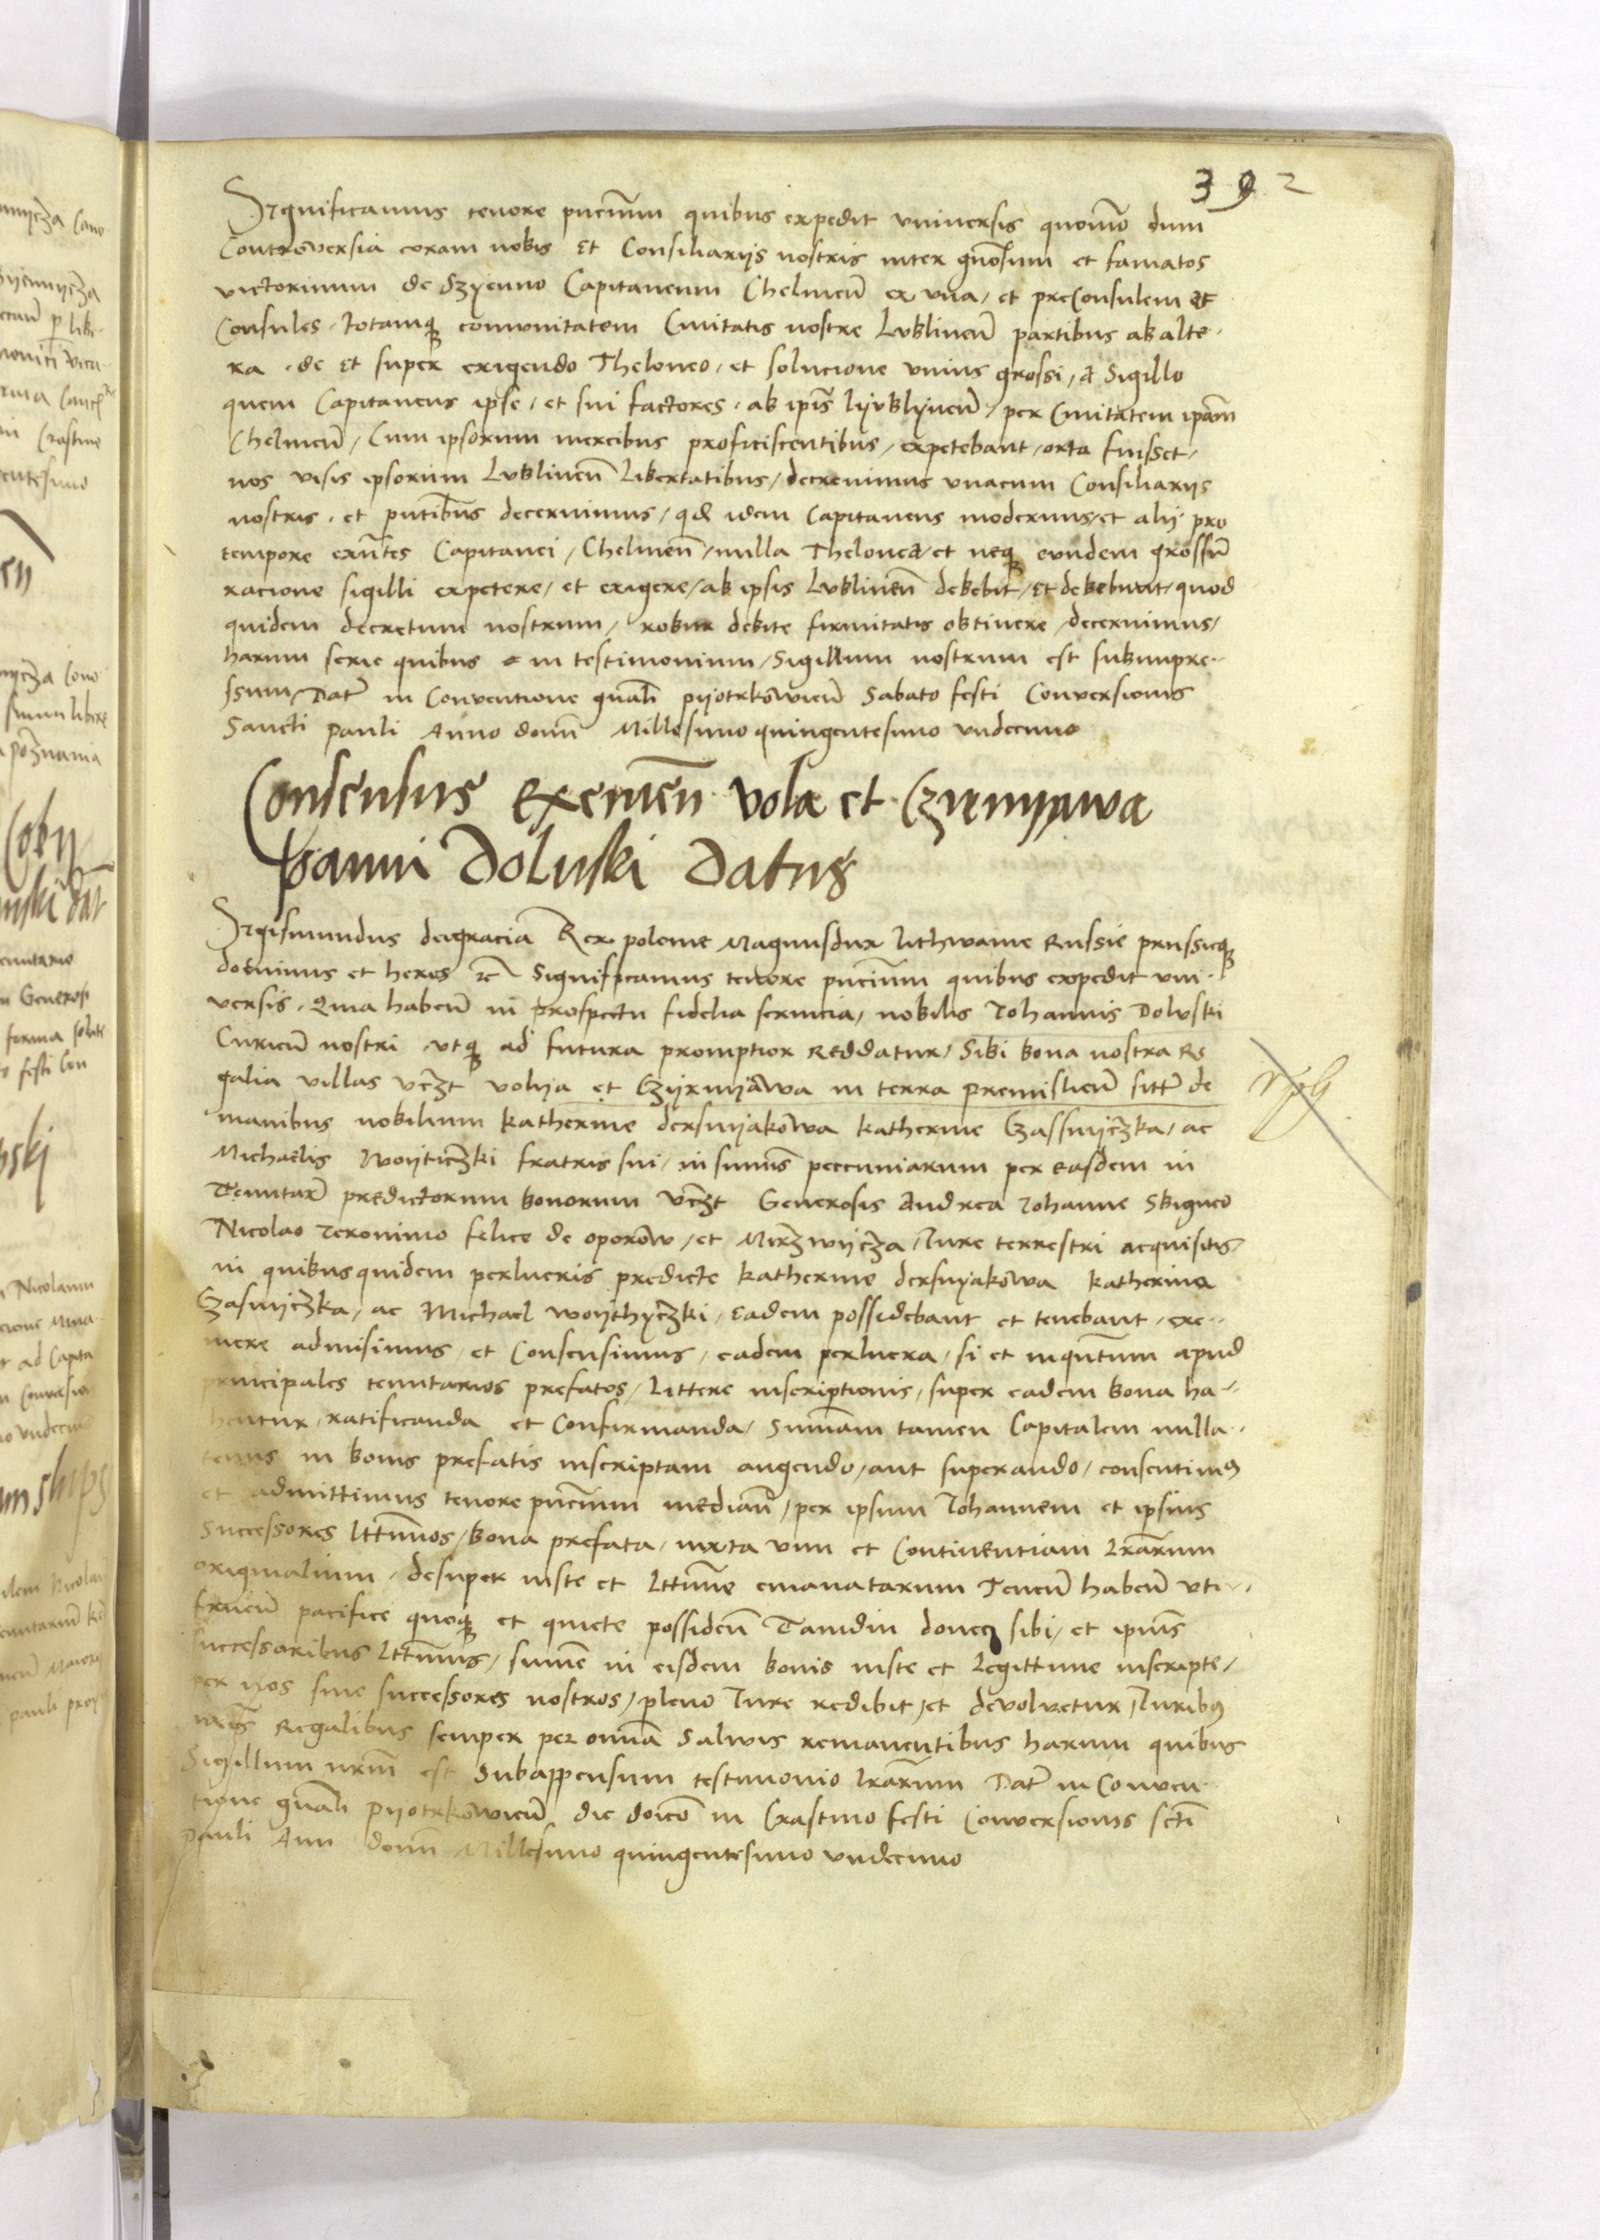 392
Significamus tenore pn̄cium quibus expedit universis quomō dum
Controversia coram nobis Et Consiliarijs nostris inter gn̄osum et famatos
victorinum de Szyenno Capitaneum Chelmen̄ ex vna / et preConsulem Et
Consules . totamq̨ comunitatem Civitatis nostre Lublinen̄ partibus ab alte-
ra . de Et super exigendo Theloneo / et solucione vnius grossi / A Sigillo
quem Capitaneus ipse / et sui factores . ab ip̄is lyvblynen̄ / per Civitatem ip̄am
Chelmen̄ / Cum ipsorum mercibus proficiscentibus / expetebant / orta fuisset /
nos visis ipsorum Lublinen̄ Libertatibus / decrevimus vnacum Consiliarijs
nostris . et pn̄tibus decernimus / qd idem Capitaneus modernus / et alij pro
tempore exn̄tes Capitanei / Chelmen̄ / nulla Thelonea / et neq̨ eundem grossū
racione sigilli expetere / et exigere / ab ipsis Lublinen̄ debebit / Et debebunt / quod
quidem decretum nostrum / robur debite firmitatis obtinere / decernimus /
harum serie quibus in testimonium / Sigillum nostrum est subimpre-
ssum / Dat̄ in Conventione gn̄ali pyotrkowien̄ Sabato festi Conversionis
Sancti Pauli Anno domī Millesimo quingentesimo vndecimo
Consensus Eximen̄ Vola et Czirnyawa
Joanni Doluski Datus
Sigismundus deigracia Rex polonie Magnusdux lithwanie Russie prussieq̨
dominus et heres ēc Significamus tenore pn̄cium quibus expedit vni-
versis . Quia haben̄ in prospectu fidelia servicia / nobilis Johannis Doluski
Curien̄ nostri vtq̨ ad futura promptior reddatur / Sibi bona nostra Re
galia villas vcz̄t volija et Czyrnyawa in terra premislien̄ sitt̄ de
manibus nobilium Katherine dersnyakowa Katherine Czassnyczka / ac
Michaelis Woyticzki fratris sui / in sumīs peccuniarum per easdem in
Tenutar̄ predictorum bonorum vcz̄t Generosis Andrea Johanne Sbigneo
Nicolao Ieronimo felice de oporow / et Mirzwycza / Iure terrestri acquisitis
in quibusquidem perlucris predicte Katherine dersnyakowa Katherina
Czasnyczka / ac Michael woythyczki / eadem possidebant et tenebant / exi-
mere admisimus / et Consensimus / eadem perlucra / si et inqn̄tum apud
principales tenutarios prefatos / Littere inscriptionis / super eadem bona ha-
bentur / ratificanda et Confirmanda / Sumam tamen Capitalem nulla-
tenus in bonis prefatis inscriptam augendo / aut superando / consentimus
et admittimus tenore pn̄cium median̄ / per ipsum Johannem et ipsius
Successores lt̄timos / bona prefata / iuxta vim et Continentiam lr̄arum
originalium / desuper iuste et lt̄time emanatarum Tenen̄ haben̄ vti-
fruen̄ pacifice quoq̨ et quiete possiden̄ Tamdiu donec sibi / et ip̄ius
successoribus lt̄timis / sume in eisdem bonis iuste et Legittime inscripte /
per nos sive successores nostros / pleno Iure redibit / et devolvetur / Iuribus
nr̄is Regalibus semper per omīa Salvis remanentibus harum quibus
Sigillum nr̄m est Subappensum testimonio lr̄arum Dat̄ in Conven-
tione gn̄ali Pyotrkowien̄ die doīco in Crastino festi Conversionis sc̄ti
Pauli Ann domī Millesimo quingentesimo vndecimo